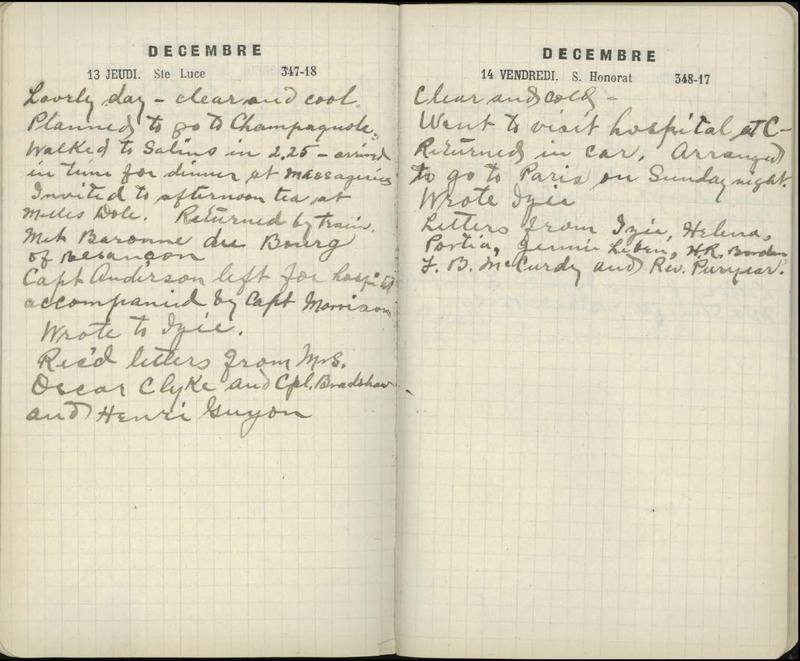 DECEMBRE
13 JEUDI. Ste Luce 347-18
Lovely day - clear and cool.
Planned to go to Champagnole.
Walked to Salins in 2.25 - arrived
in time for dinner at Messageries
Invited to afternoon tea at
Melles Dole. Returned by train.
Met Baronne du Bourg
of Besançon
Capt Anderson left for hospital
accompanied by Capt Morrison
Wrote to Izie.
Rec'd letters from Mrs.
Oscar Clyke and Cpl. Bradshaw
and Henri Guyon
DECEMBRE
14 VENDREDI. S. Honorat 348-17
Clear and cold -
Went to visit hospital at C-
Returned in car. Arranged
to go to Paris on Sunday night.
Wrote Izie
Letters from Izie, Helena,
Portia, Jennie Liben, H.R. Borden
F. B. McCurdy and Rev. Puryear.